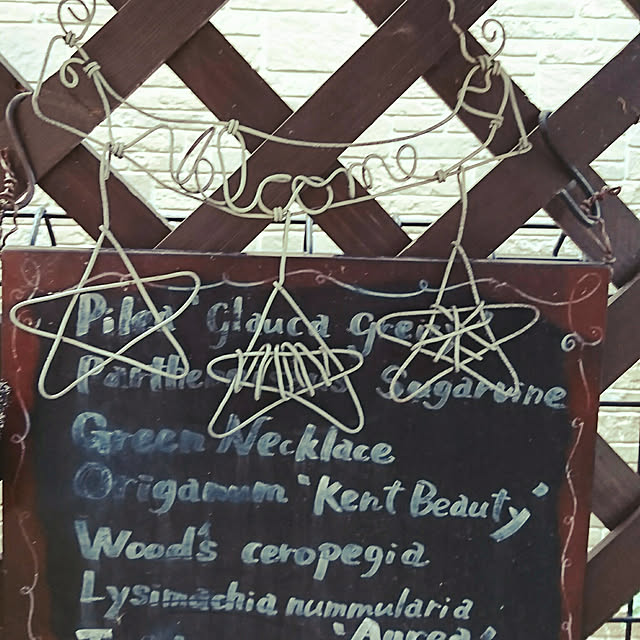 Welcome
Pilea Glauca Greizy
Parthenocissus Sugarvine
Green Necklace
Origanum 'Kent Beauty'
Wood's ceropegia
Lysimachia nummularia
'Aurea'